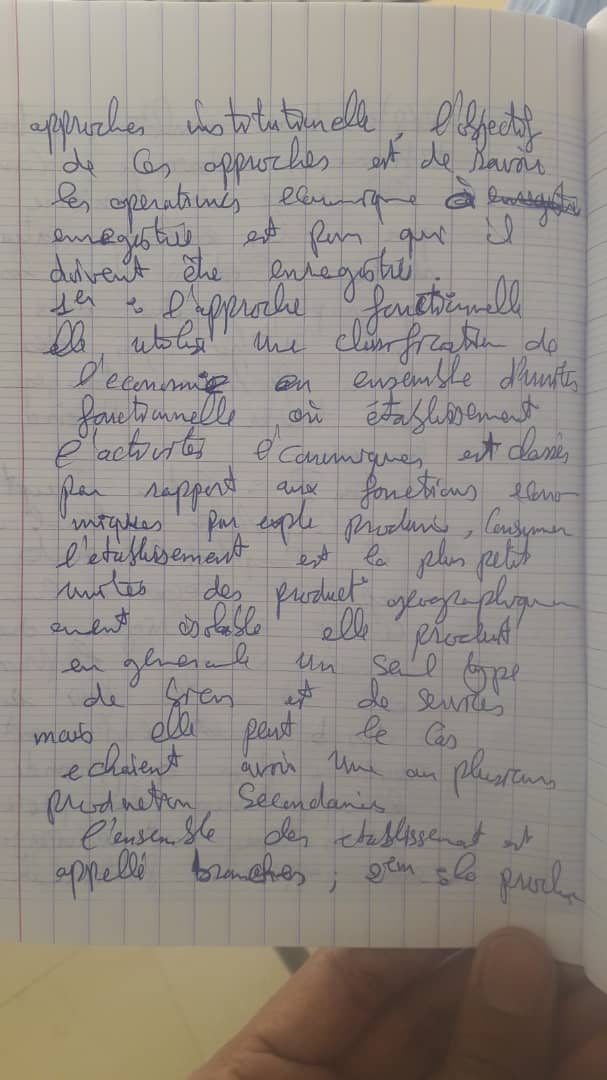 approches institutionnelle, l'objectif
de ces approches est de savoir
les operations economique à
enregistrie est par qui il
doivent être enregistrié.
1er : l'approche fonctionnelle
elle utilise une classification de
l'economie en ensemble d'unités
fonctionnelle où établissement
l'activités économiques est classés
par rapport aux fonctions écono
miques par exple produire, Consommer
l'etablissement est la plus petit
unités des product° géographiquem
ement isolable elle produit
en générale un seul type
de bien et de services
mais elle peut le cas
echaient avoir une ou plusieurs
production Secondaires
l'ensemble des etablissemnt est
appellé branches ; 2em : la